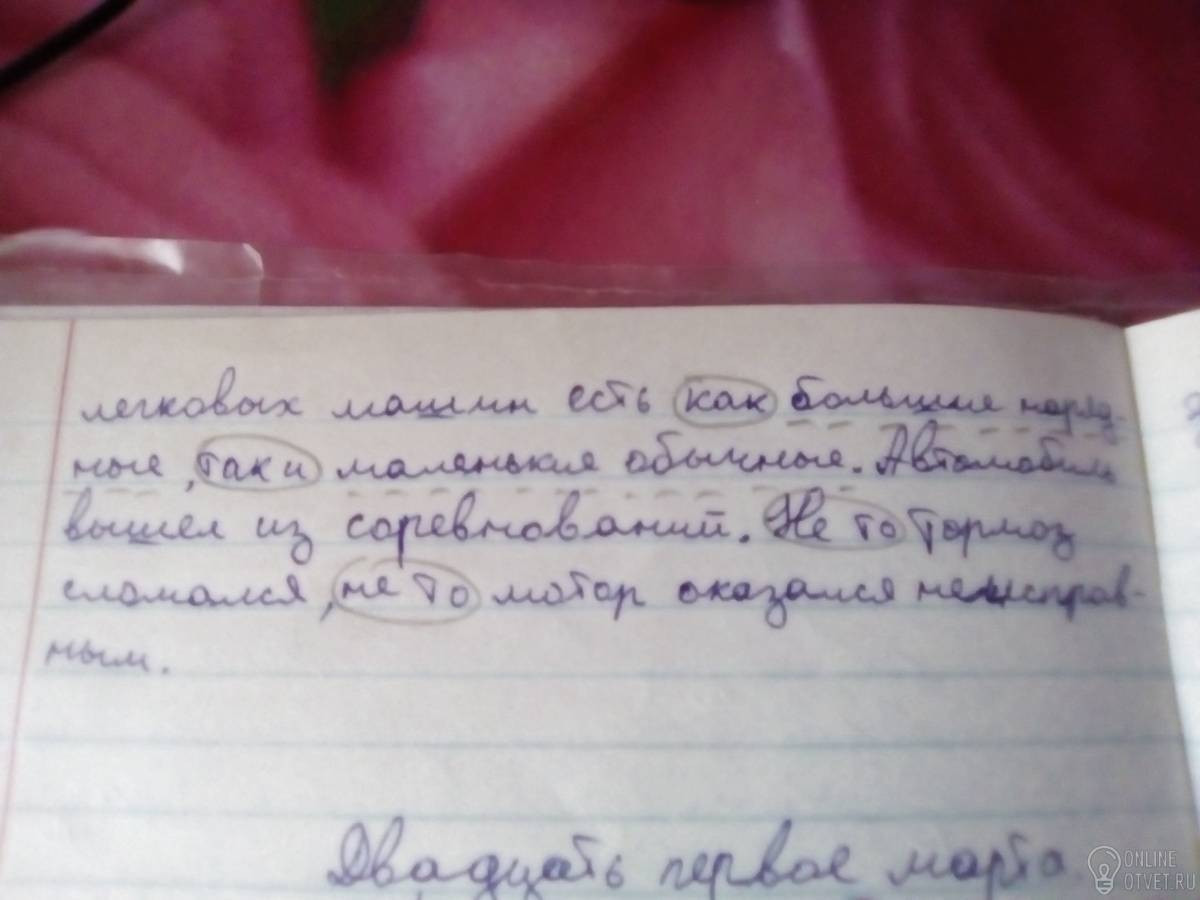 легковых машин есть как большие наряд-
ные, так и маленькие обычные. Автомобиль
вышел из соревнований. Не то тормоз
сломался, не то мотор оказался неисправ-
ным.
Двадцать первое марта.
ONLINE
OTVET.RU